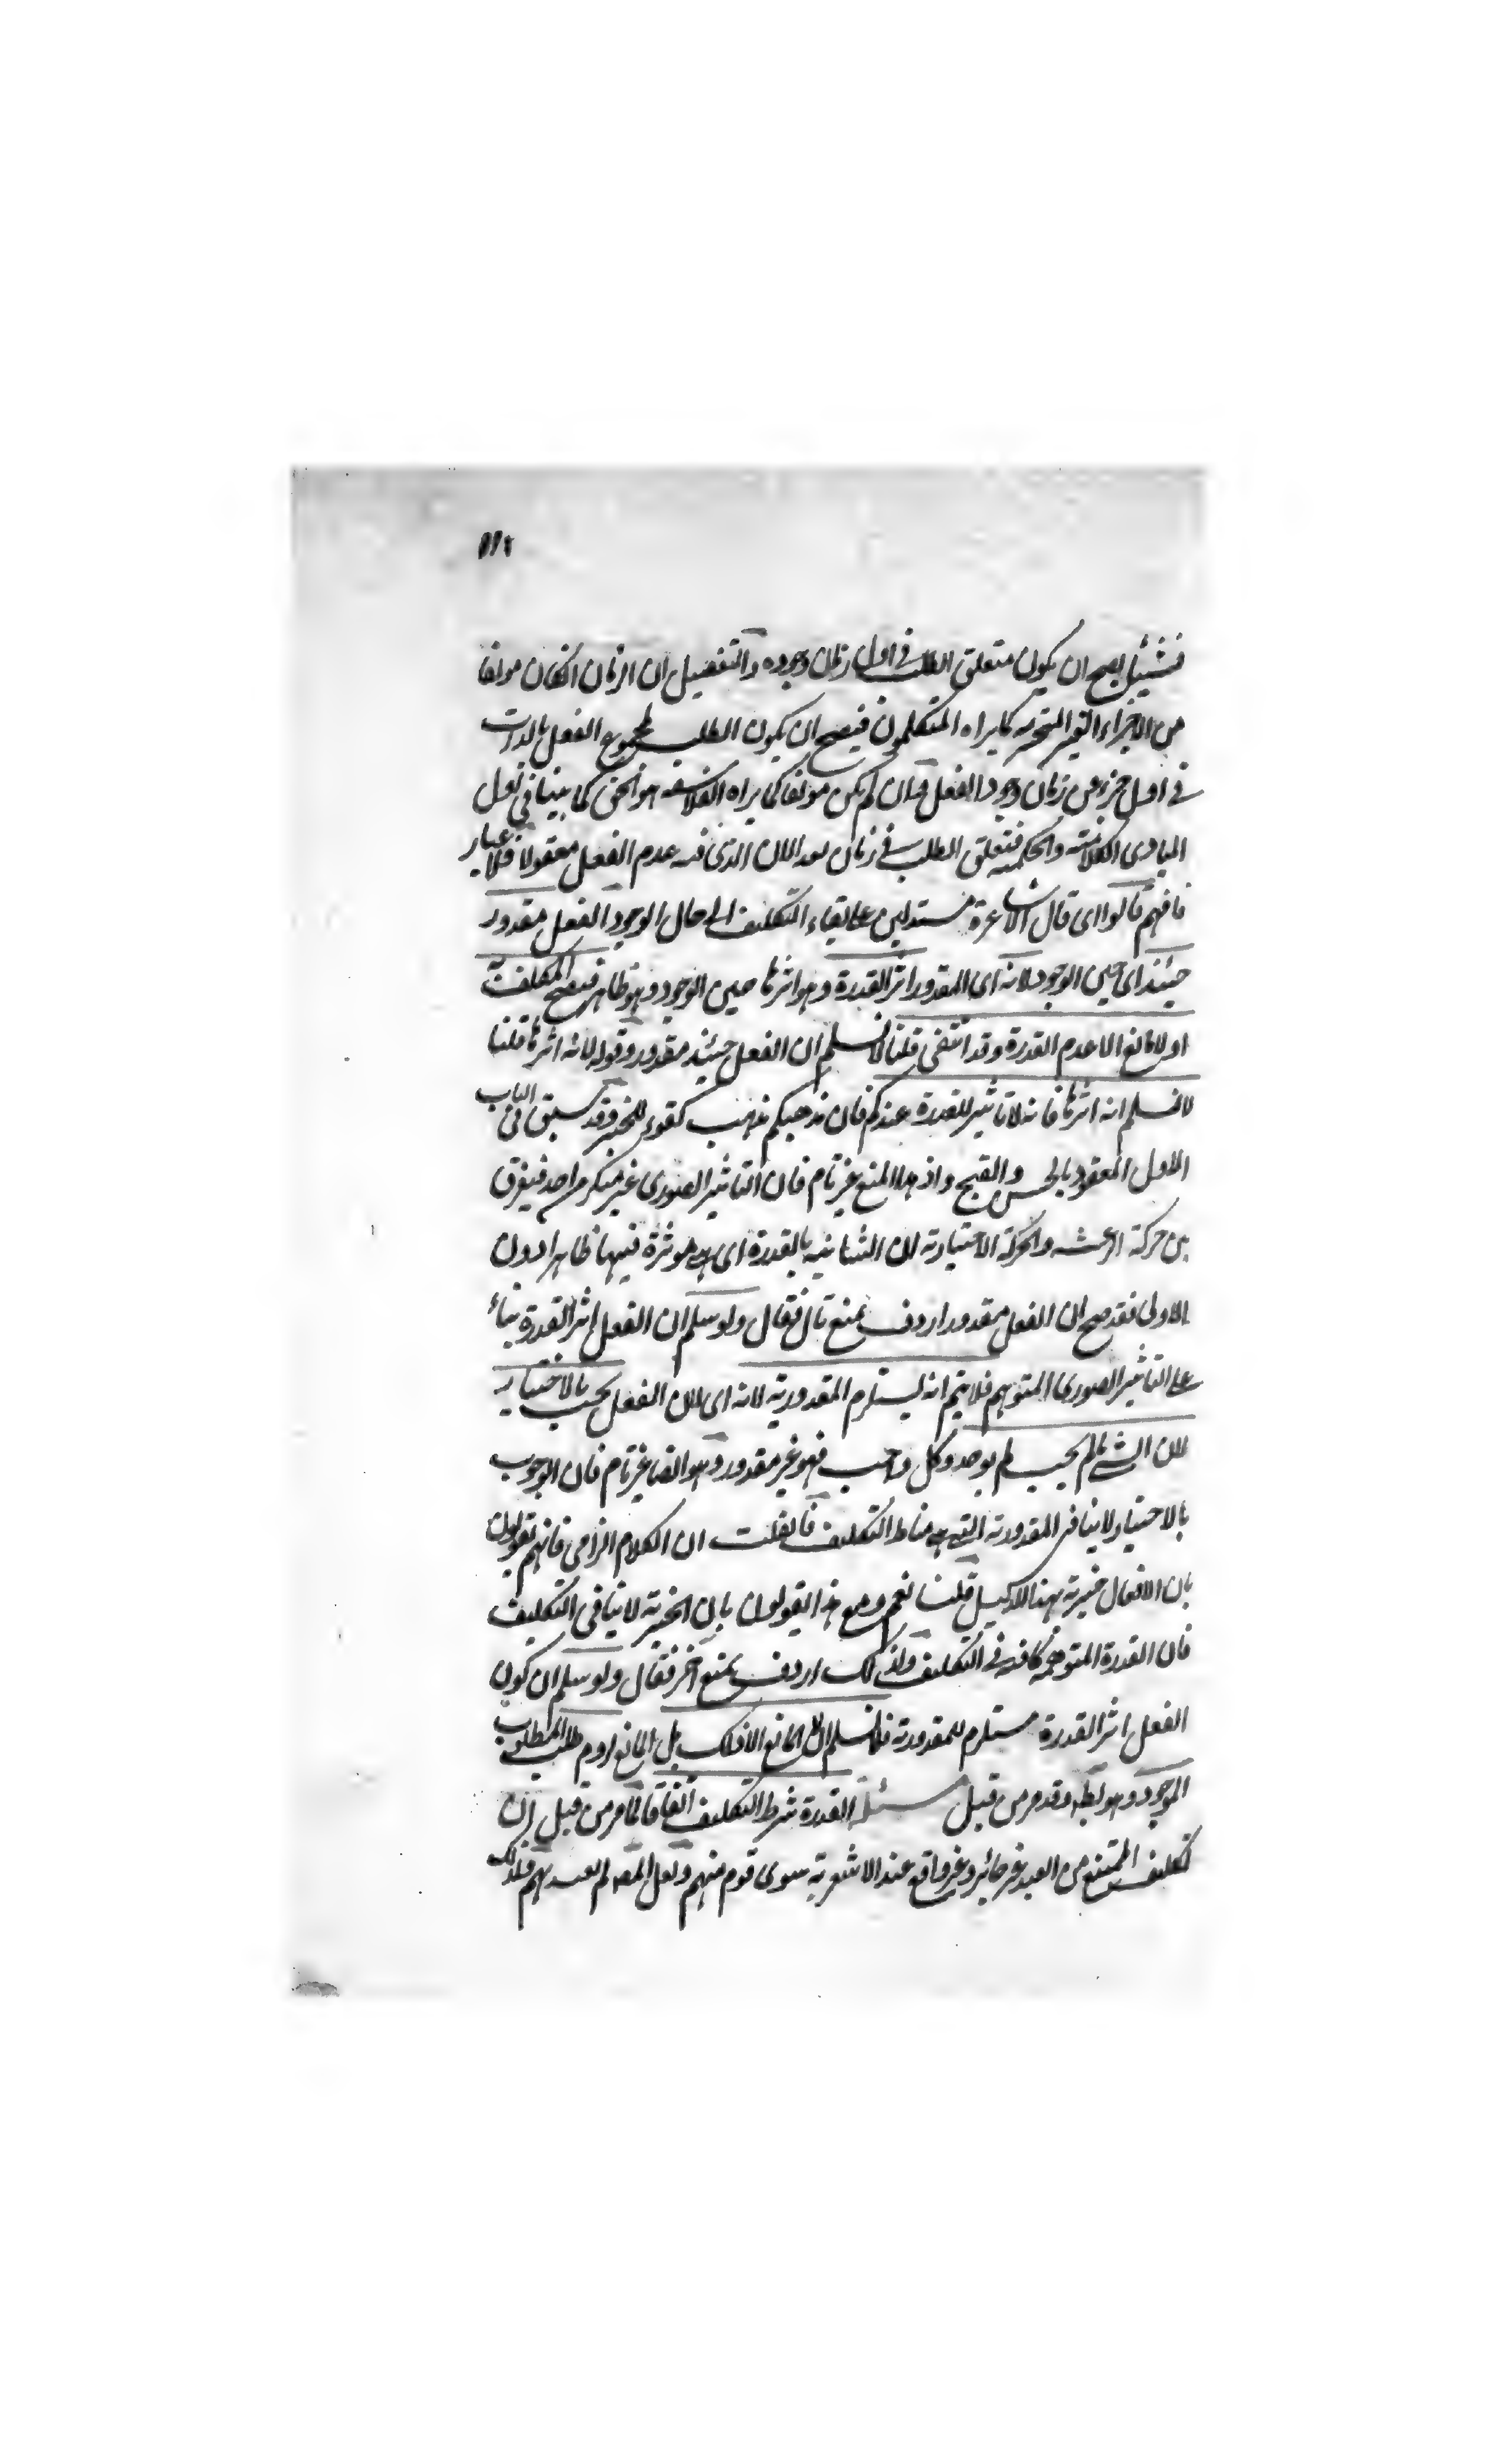 ١١٢
فشيئا يصح ان يكون متعلق الطلب في اول زمان وجوده والتفصيل ان الزمان انكان مولفا
من الاجزاء الغير المتجزية كما يراه المتكلمون فيصح ان يكون الطلب لمجموع الفعل بالذات
في اول جزء من زمان وجود الفعل وان لم يكن مولفا كما يراه الفلاسفة هو الحق كما بينا في
المبادي الكلامية والحكمية فتعلق الطلب في زمان بعد الان الذي فيه عدم الفعل معقولا فلا
فافهم قالوا اي قال الاشاعرة مستدلين على بقاء التكليف الى حال الوجود الفعل مقدور
حينئذ اي حين الوجود لانه اي المقدور اثر القدرة وهو اثرها حين الوجود وهو ظاهر فيصح التكليف به
اولا مانع الا عدم القدرة وقد انتفى قلنا لا نسلم ان الفعل حينئذ مقدور وقوله لانه اثرها قلنا
لا نسلم انه اثرها فانه لا تاثير للقدرة عندكم فان مذهبكم مذهب كفؤ للجبر وقد سبق في الباب
الاول المعقود بالحسن والقبح واذ هذا المنع غير تام فان التاثير الصوري غير منكر من احد فيفرق
بين حركة الرعشة والحركة الاختيارية ان الثانية بالقدرة اي هي موثرة فيها ظاهرا دون
الاولى فقد صح ان الفعل مقدور اردف بمنع ثان فقال ولو سلم ان الفعل اثر القدرة بناء
على التاثير الصوري المتوهم فلا يتم انه يستلزم المقدورية لانه اي لان الفعل يجب بالاختيار
لان الشئ ما لم يجب لم يوجد وكل واجب فهو غير مقدور وهو ايضا غير تام فان الوجوب
بالاختيار لا ينافي المقدورية التي هي مناط التكليف فان قلت ان الكلام الزامي فانهم يقولون
بان الافعال جبرية بهذا الدليل قلنا نعم ومع هذا يقولون بان الجبرية لا تنافي التكليف
فان القدرة المتوهمة كافية في التكليف ولذلك اردف بمنع آخر فقال ولو سلم ان كون
الفعل اثر القدرة مستلزم للمقدورية فلا نسلم ان لا مانع الا ذلك بل المانع لزوم طلب المطلوب
الموجود وهو باطل وقد مر من قبل مسئلة القدرة شرط التكليف اتفاقا لما مر من قبل ان
تكليف الممتنع من العبد غير جائز وغير واقع عند الاشعرية سوى قوم منهم ولعل المصـ لم يعتد بهم فلذلك